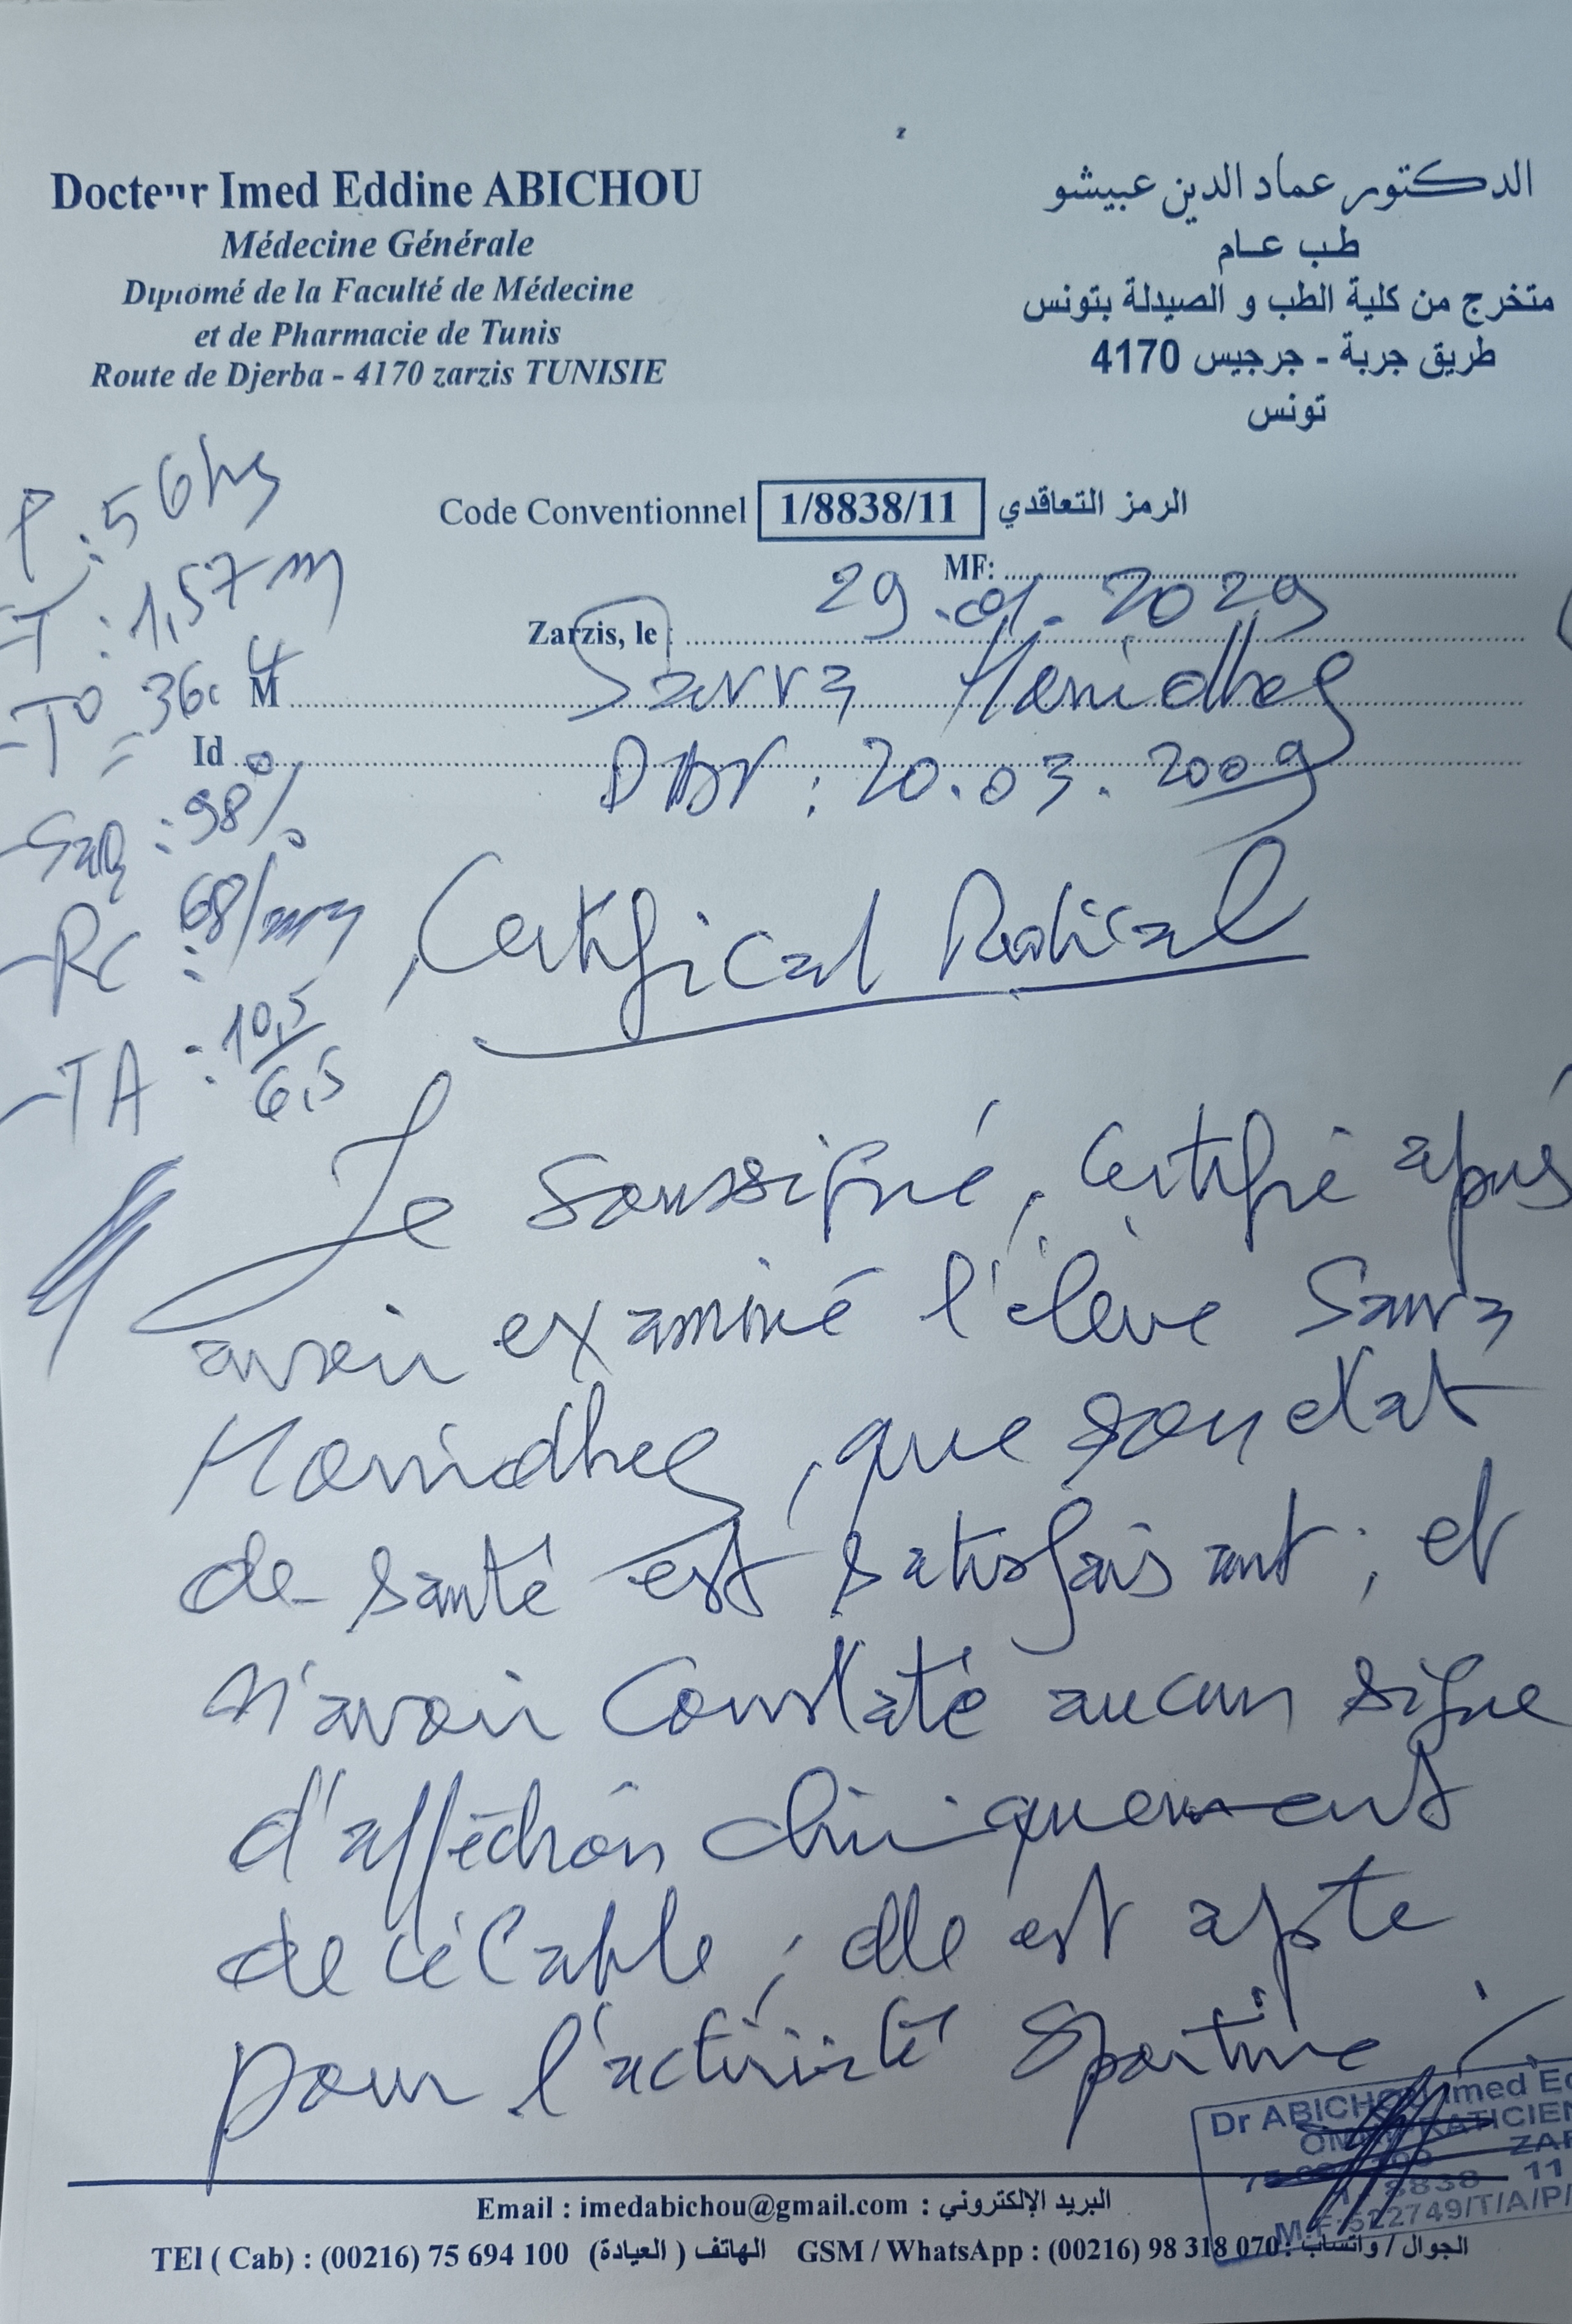 Docteur Imed Eddine ABICHOU
Médecine Générale
Diplomé de la Faculté de Médecine
et de Pharmacie de Tunis
Route de Djerba - 4170 zarzis TUNISIE
الدكتور عماد الدين عبيشو
طب عام
متخرج من كلية الطب و الصيدلة بتونس
طريق جربة - جرجيس 4170
تونس
Code Conventionnel 1/8838/11 الرمز التعاقدي
MF:
Zarzis, le : 29.01.2029
M Sarra Hamidheg
Id DDN : 20.03.2009
P : 56 kg
-T : 1,57 m
-T° = 36,4
-SaO2 : 98%
-RC : 68/mn
-TA : 10,5/6,5
Certifical Médical
Je soussigné, certifié après
avoir examiné l'élève Sarra
Hamidheg, que son etat
de santé est satisfaisant ; et
n'avoir constaté aucun signe
d'affection cliniquement
décélable ; elle est apte
pour l'activité sportive.
Dr ABICHOU Imed Ed
OMNIPRATICIEN
ZAR
1/8838 11
M.F:522749/T/A/P/
Email : imedabichou@gmail.com : البريد الإلكتروني
TEl ( Cab) : (00216) 75 694 100 الهاتف ( العيادة) GSM / WhatsApp : (00216) 98 318 070 : الجوال / واتساب